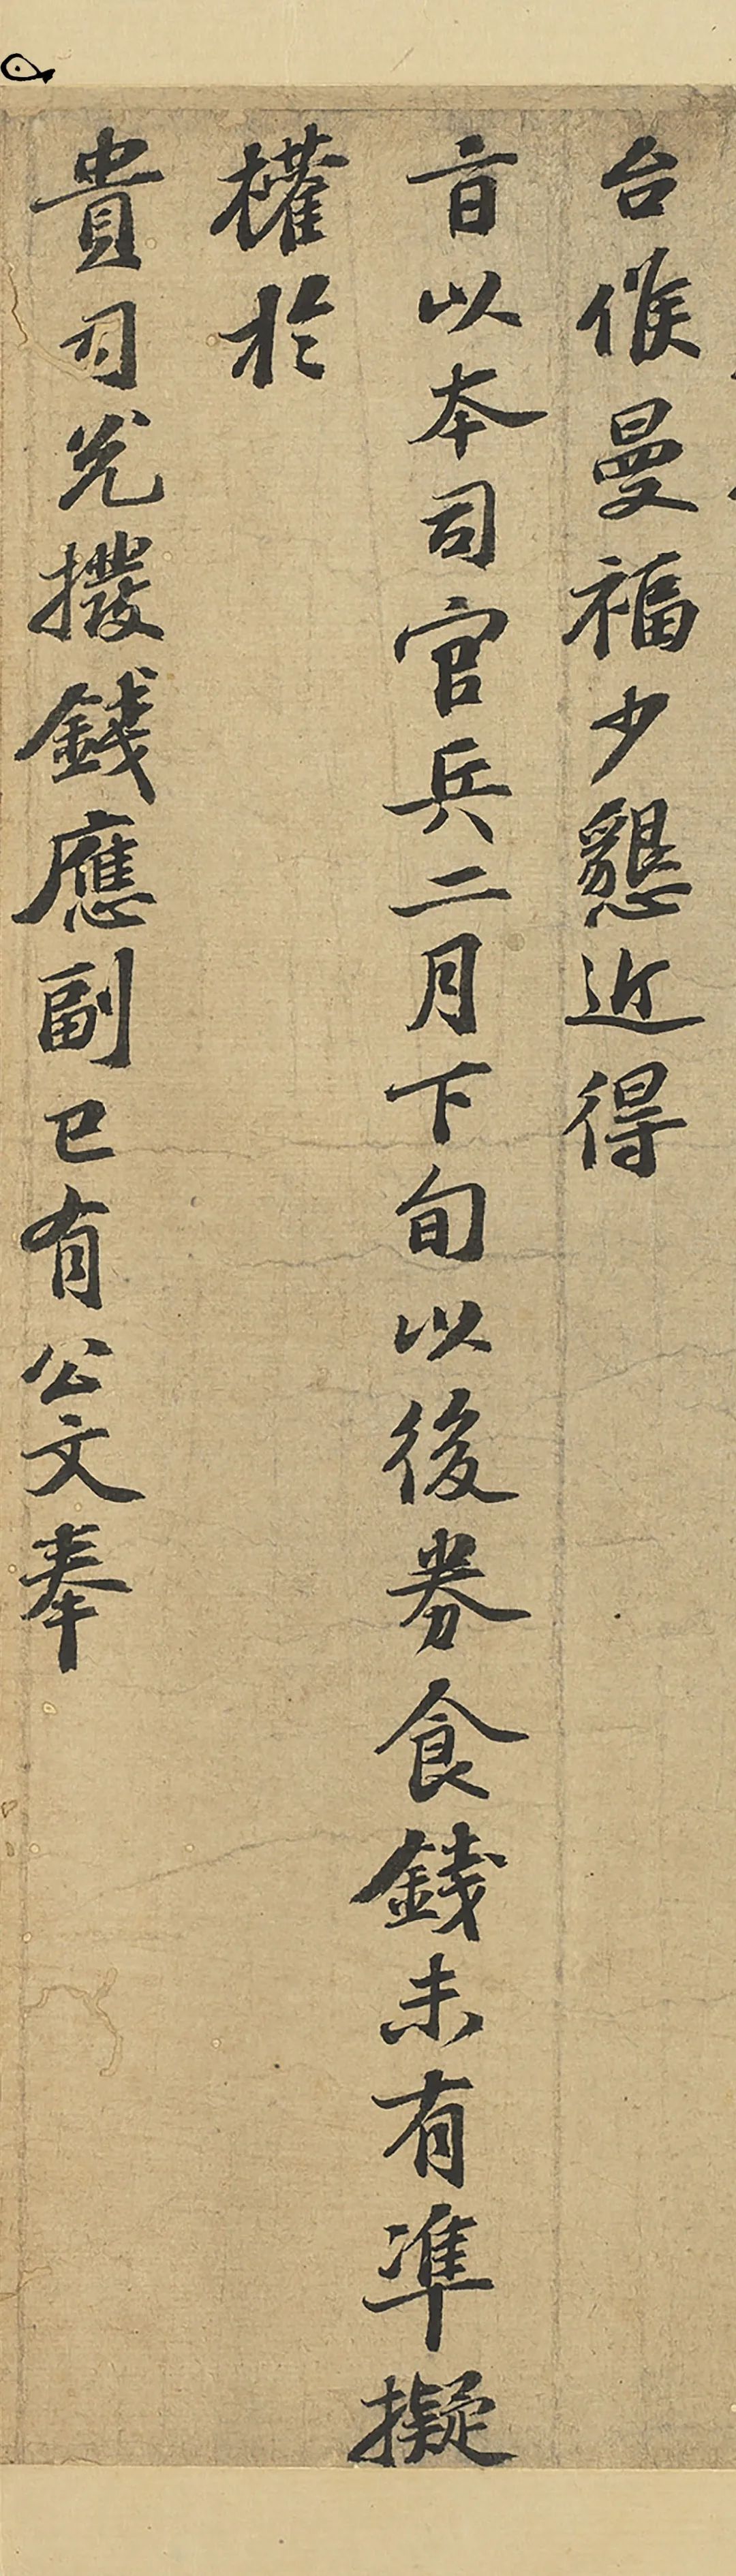 台候曼福少懇近得
旨以本司官兵二月下旬以後券食錢未有準擬
權於
貴司兌撥錢應副已有公文奉